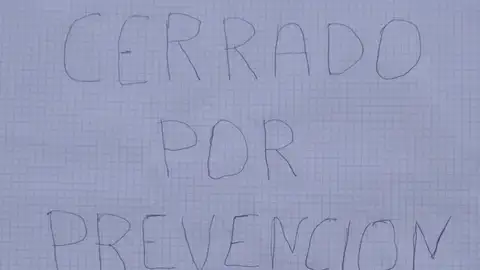 CERRADO
POR
PREVENCION